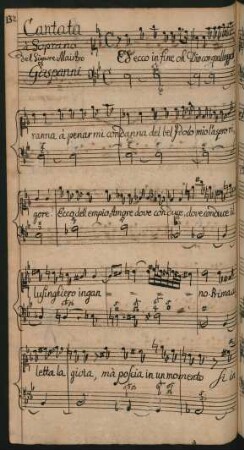 132
Cantata
à Soprano
del Signore Maestro
Gasparini
Ed ecco in fine oh Dio
ranna à penar mi condanna del bel Idolo mio l'aspro ri
gore Ecco del empio Amore dove conduce, dove conduce il
lusinghiero ingan - - no Prima
letta la gioia, mà poscia in un momento si